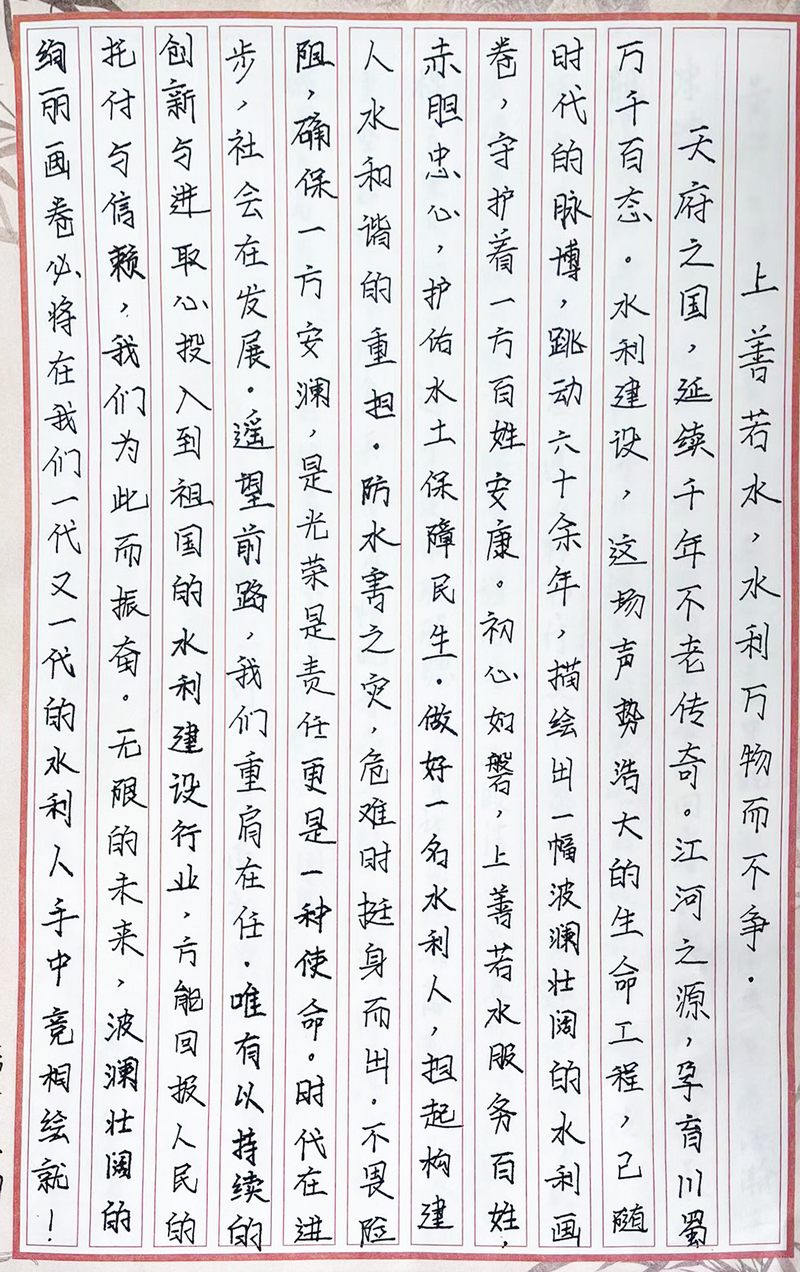 上善若水，水利万物而不争.
天府之国，延续千年不老传奇。江河之源，孕育川蜀
万千百态。水利建设，这场声势浩大的生命工程，已随
时代的脉博，跳动六十余年，描绘出一幅波澜壮阔的水利画
卷，守护着一方百姓安康。初心如磐，上善若水服务百姓，
赤胆忠心，护佑水土保障民生.做好一名水利人，担起构建
人水和谐的重担.防水害之灾，危难时挺身而出.不畏险
阻，确保一方安澜，是光荣是责任更是一种使命。时代在进
步，社会在发展.遥望前路，我们重肩在任.唯有以持续的
创新与进取心投入到祖国的水利建设行业，方能回报人民的
托付与信赖，我们为此而振奋。无限的未来，波澜壮阔的
绚丽画卷必将在我们一代又一代的水利人手中竞相绘就！